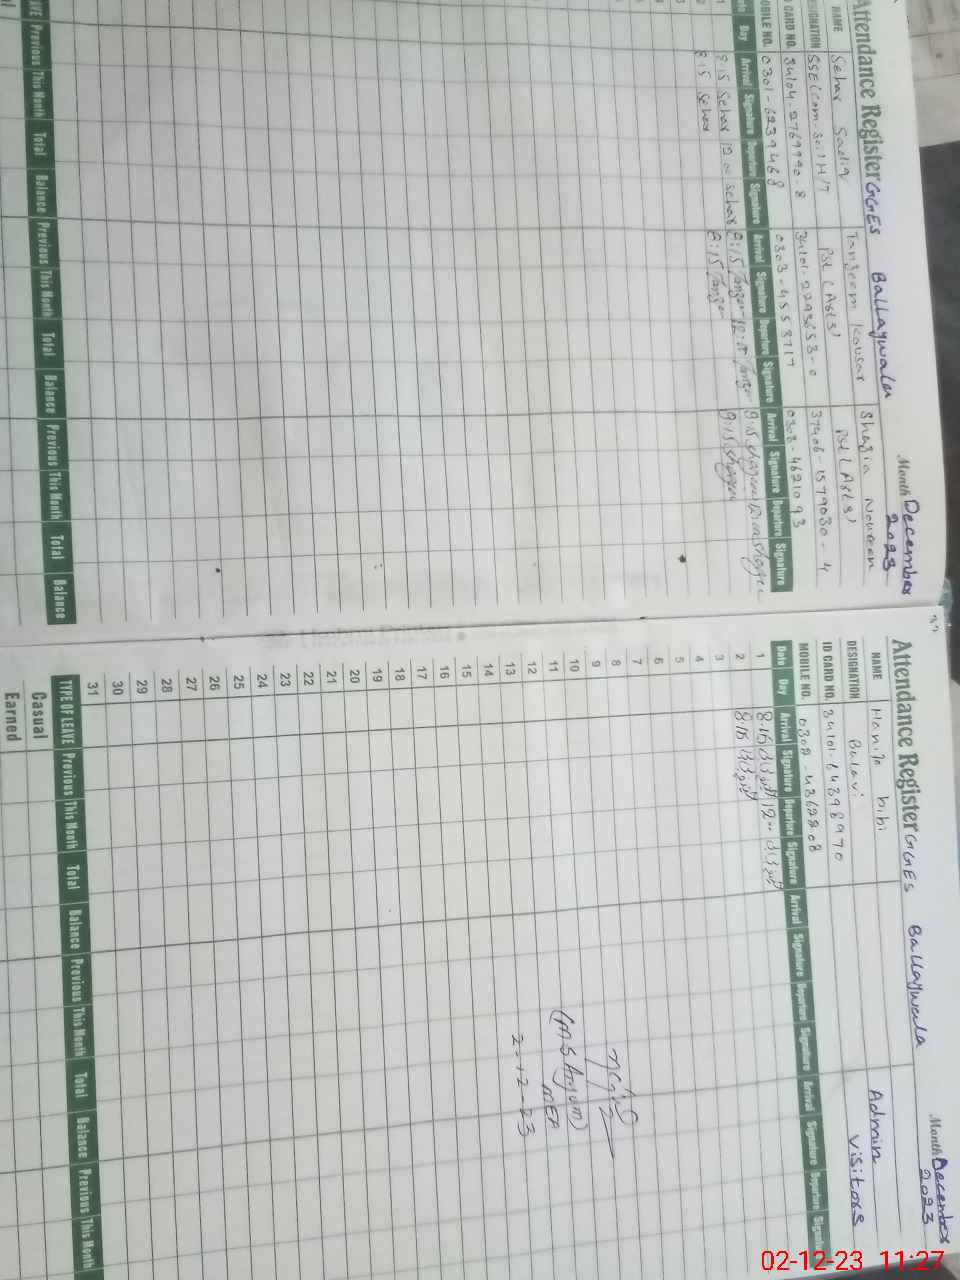 Attendance Register GGES Ballaywala Month December 2023
NAME Sehar Sadiq Tanzeem Kousar Shazia Noureen
DESIGNATION SSE(com.sci) H/T PST (AEL's) PST (AEL's)
ID CARD NO. 34104-2769990-8 34101-2293653-0 37406-1579030-4
MOBILE NO. 0301-6239468 0303-4558717 0308-4621093
Date Day Arrival Signature Departure Signature Arrival Signature Departure Signature Arrival Signature Departure Signature
1 8:15 Sehar 12:00 Sehar 8:15
2 8:15 Sehar 8:15
3
LEAVE Previous This Month Total Balance Previous This Month Total Balance Previous This Month Total Balance
Attendance Register GGES Ballaywala Month December 2023
NAME Hanifa bibi Admin
DESIGNATION Balavi visitors
ID CARD NO. 34101-6439897-0
MOBILE NO. 0302-4362808
Date Day Arrival Signature Departure Signature Arrival Signature Departure Signature Arrival Signature Departure Signature
1 8:15 12
2 8:15
3
4
5
6
7
8
9
10
(M S Anjum)
11
MEA
12
2-12-23
13
14
15
16
17
18
19
20
21
22
23
24
25
26
27
28
29
30
31
TYPE OF LEAVE Previous This Month Total Balance Previous This Month Total Balance Previous This Month
Casual
Earned
02-12-23 11:27